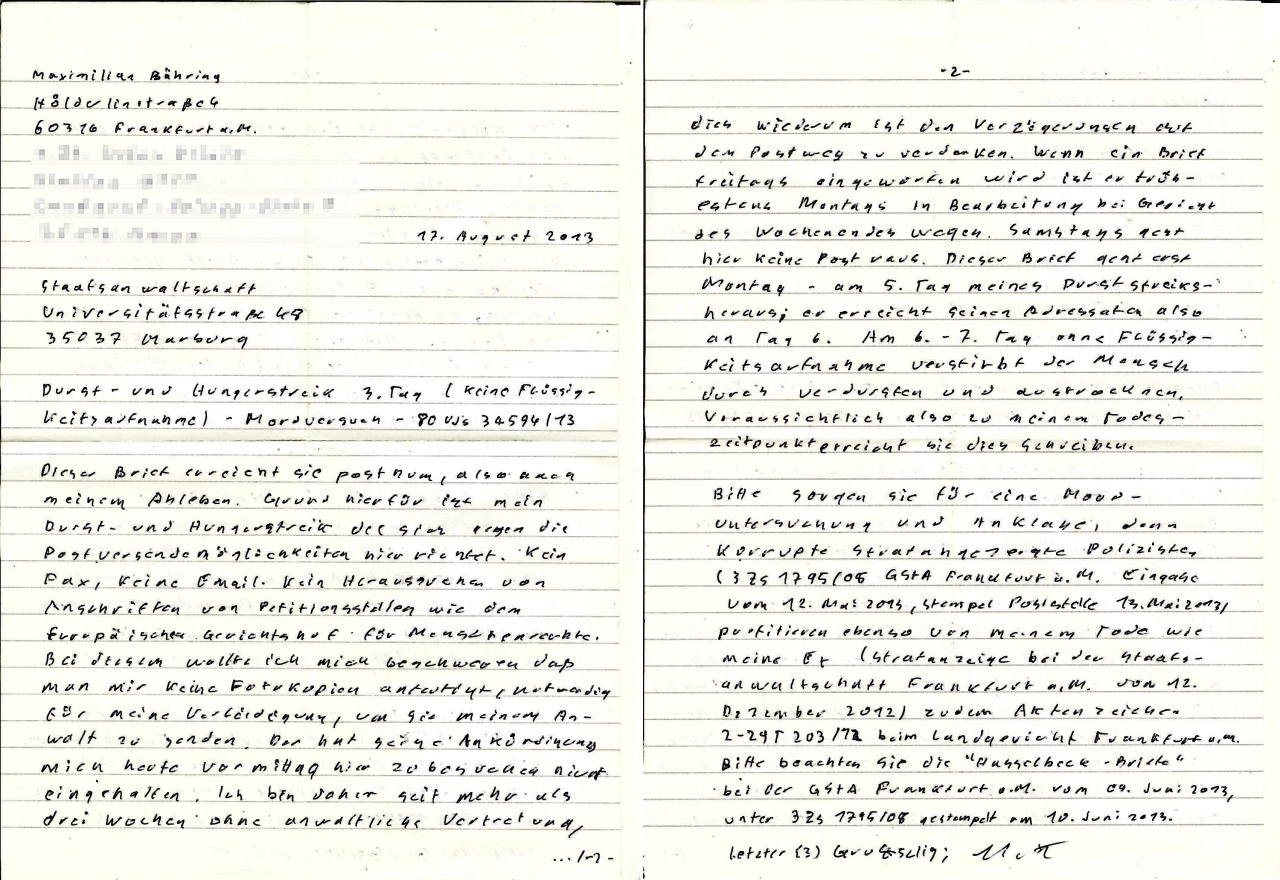 Maximilian Bähring
Hölderlinstraße 4
60316 Frankfurt a.M.
17. August 2013
Staatsanwaltschaft
Universitätsstraße 48
35037 Marburg
Durst- und Hungerstreik 3. Tag (keine Flüssig-
keitsaufnahme) - Mordversuch - 80 UJs 34594/13
Dieser Brief erreicht sie posthum, also nach
meinem Ableben. Grund hierfür ist mein
Durst- und Hungerstreik der sich gegen die
Postversendemöglichkeiten hier richtet. Kein
Fax, keine Email. Kein Heraussuchen von
Anschriften von Petitionsstellen wie dem
Europäischen Gerichtshof für Menschenrechte.
Bei diesem wollte ich mich beschweren daß
man mir keine Fotokopien anfertigt, notwendig
für meine Verteidigung, um sie meinem An-
walt zu senden. Der hat seine Ankündigung
mich heute Vormittag hier zu besuchen nicht
eingehalten. Ich bin daher seit mehr als
drei Wochen ohne anwaltliche Vertretung,
.../-2-
-2-
dies wiederum ist den Verzögerungen auf
dem Postweg zu verdanken. Wenn ein Brief
freitags eingeworfen wird ist er früh-
estens Montags in Bearbeitung bei Gericht
des Wochenendes wegen. Samstags geht
hier keine Post raus. Dieser Brief geht erst
Montag - am 5. Tag meines Durststreiks-
heraus; er erreicht seinen Adressaten also
an Tag 6. Am 6. - 7. Tag ohne Flüssig-
keitsaufnahme verstirbt der Mensch
durch verdursten und austrocknen.
Voraussichtlich also zu meinem Todes-
zeitpunkt erreicht sie dies Schreiben.
Bitte sorgen sie für eine Mord-
untersuchung und Anklage, denn
korrupte strafangezeigte Polizisten
(3 Zs 1795/08 GStA Frankfurt a.M. Eingabe
vom 12. Mai 2013, Stempel Poststelle 13. Mai 2013)
profitieren ebenso von meinem Tode wie
meine Ex (Strafanzeige bei der Staats-
anwaltschaft Frankfurt a.M. vom 12.
Dezember 2012) zudem Aktenzeichen
2-29T 203/12 beim Landgericht Frankfurt a.M.
Bitte beachten Sie die "Hasselbeck-Briefe"
bei der GStA Frankfurt a.M. vom 09. Juni 2013,
unter 3 Zs 1795/08 gestempelt am 10. Juni 2013.
letzter (3)